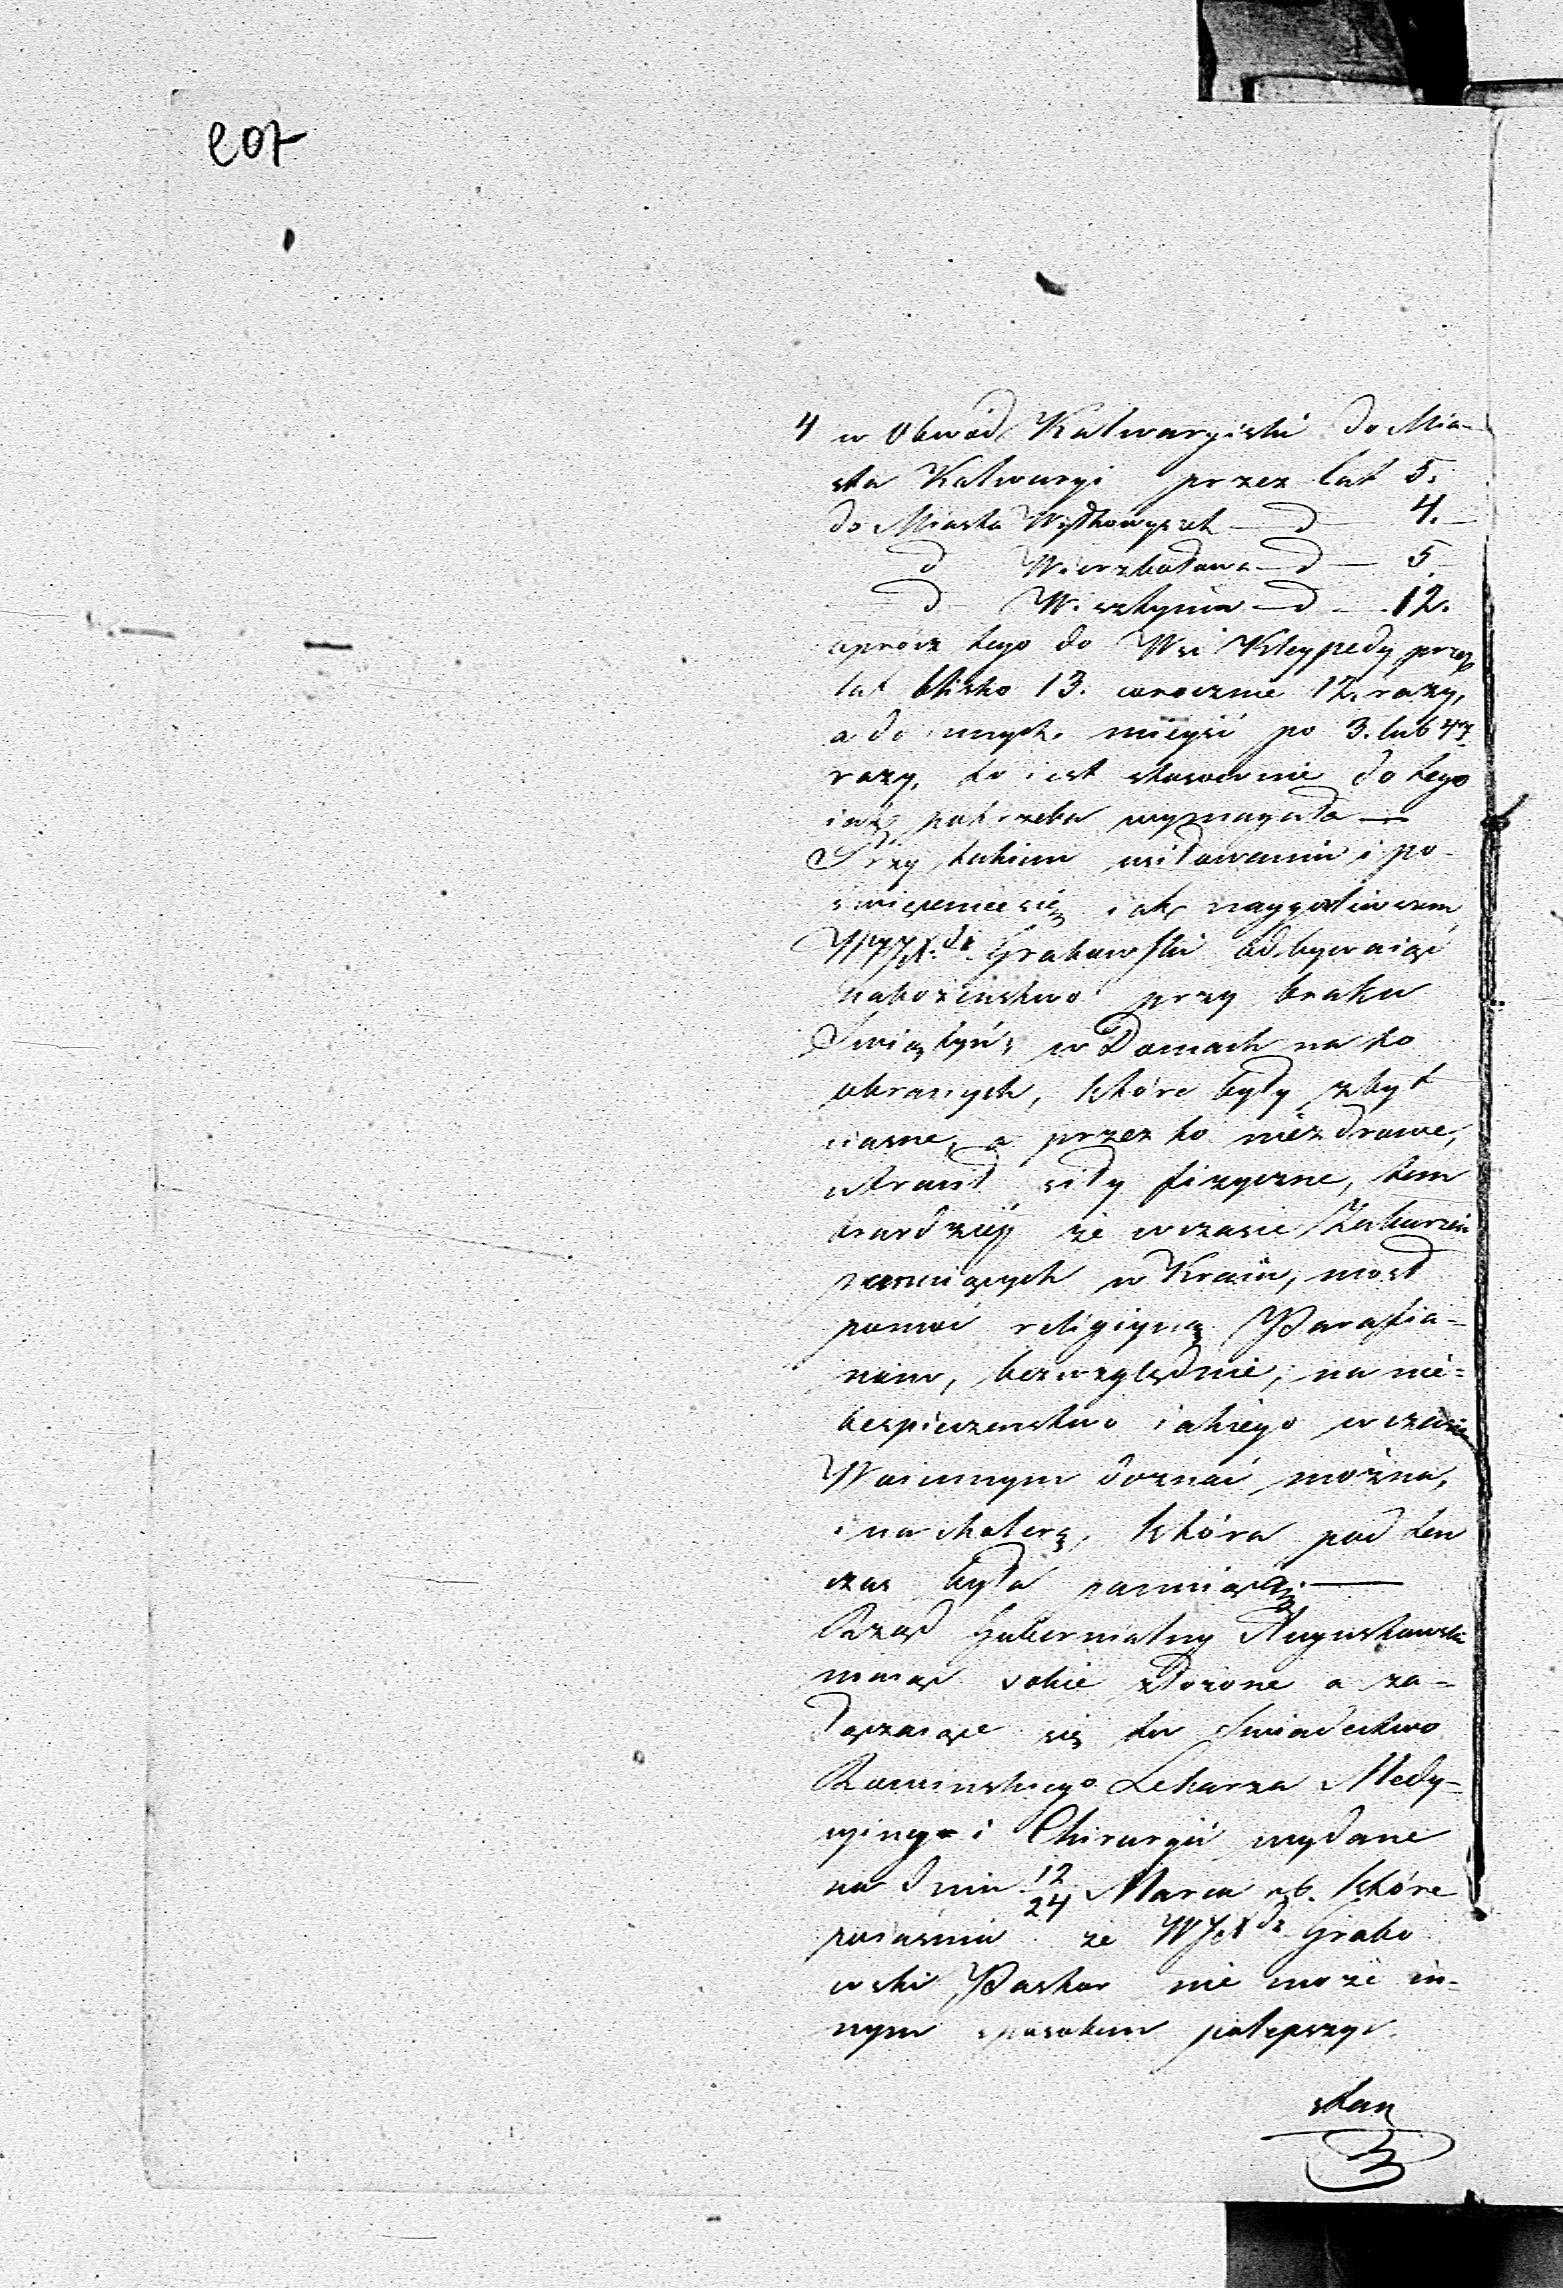 207
4 w Obwód Kalwaryiski do Mia-
sta Kalwaryi przez lat 5.
do Miasta Wyłkowyszek — d — 4. —
d Wierzbołowa — d — 5 —
d — Wisztyńca — d — 12.
oprócz tego do Wsi Kleypedy przez
lat blisko 13. corocznie 12. razy,
a do innych mieysć po 3. lub 4ry
razy, to iest stosownie do tego
iak potrzeba wymagała —
Przy takiem usiłowaniu i po-
święceniu się iak naygorliwszem,
Grabowski odbywaiąc
nabożeństwo przy braku
Świątyń, w Domach na to
obranych, które były zbyt
ciasne, a przez to niezdrowe,
utracił siły fizyczne, tem
bardziey że w czasie Zaburzeń
panuiących w Kraiu, niosł
pomoc religiyną Parafia-
nom, bezwzględnie, na nie-
bespieczenstwo iakiego w czasie
Woiennym doznać można,
i na cholerę, która pod ten
czas była panuiącą. —
Rząd Gubernialny Augustowski
maiąc sobie złożone a za-
łączaiące się tu Świadectwo
Lekarza Medy-
cyny i Chirurgii wydane
na dniu 12/24 Marca rb. które
poiasnia że WJXdz Grabo
wski Pastor nie może in-
nym sposobem polepszyć
stan